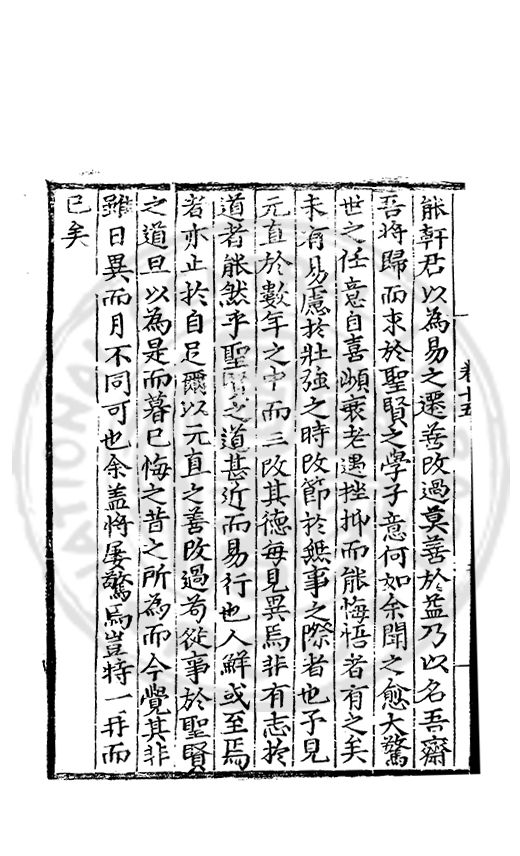 能軒君以為易之遷善改過莫善於益乃以名吾齋
吾將歸而求於聖賢之學子意何如余聞之愈大驚
世之任意自喜頗衰老遇挫抑而能悔悟者有之矣
未有易慮於壯強之時改節於無事之際者也予見
元直於數年之中而三改其德每見異焉非有志於
道者能然乎聖賢之道甚近而易行也人鮮或至焉
者亦止於自足爾以元直之善改過苟從事於聖賢
之道旦以為是而暮已悔之昔之所為而今覺其非
雖日異而月不同可也余盖將屢驚焉豈特一再而
已矣
卷十五
NATIONAL